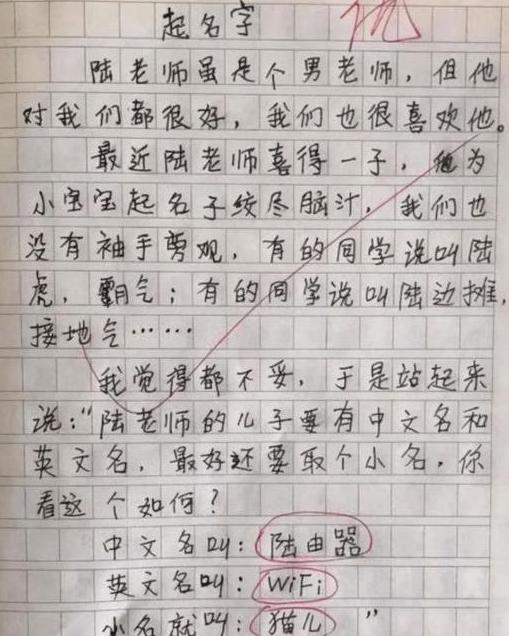 起名字
优
陆老师虽是个男老师，但他
对我们都很好，我们也很喜欢他。
最近陆老师喜得一子，他为
小宝宝起名子绞尽脑汁，我们也
没有袖手旁观，有的同学说叫陆
虎，霸气；有的同学说叫陆边摊，
接地气……
我觉得都不妥，于是站起来
说：“陆老师的儿子要有中文名和
英文名，最好还要取个小名，你
看这个如何？
中文名叫：陆由器
英文名叫：WiFi
小名就叫：猫儿”